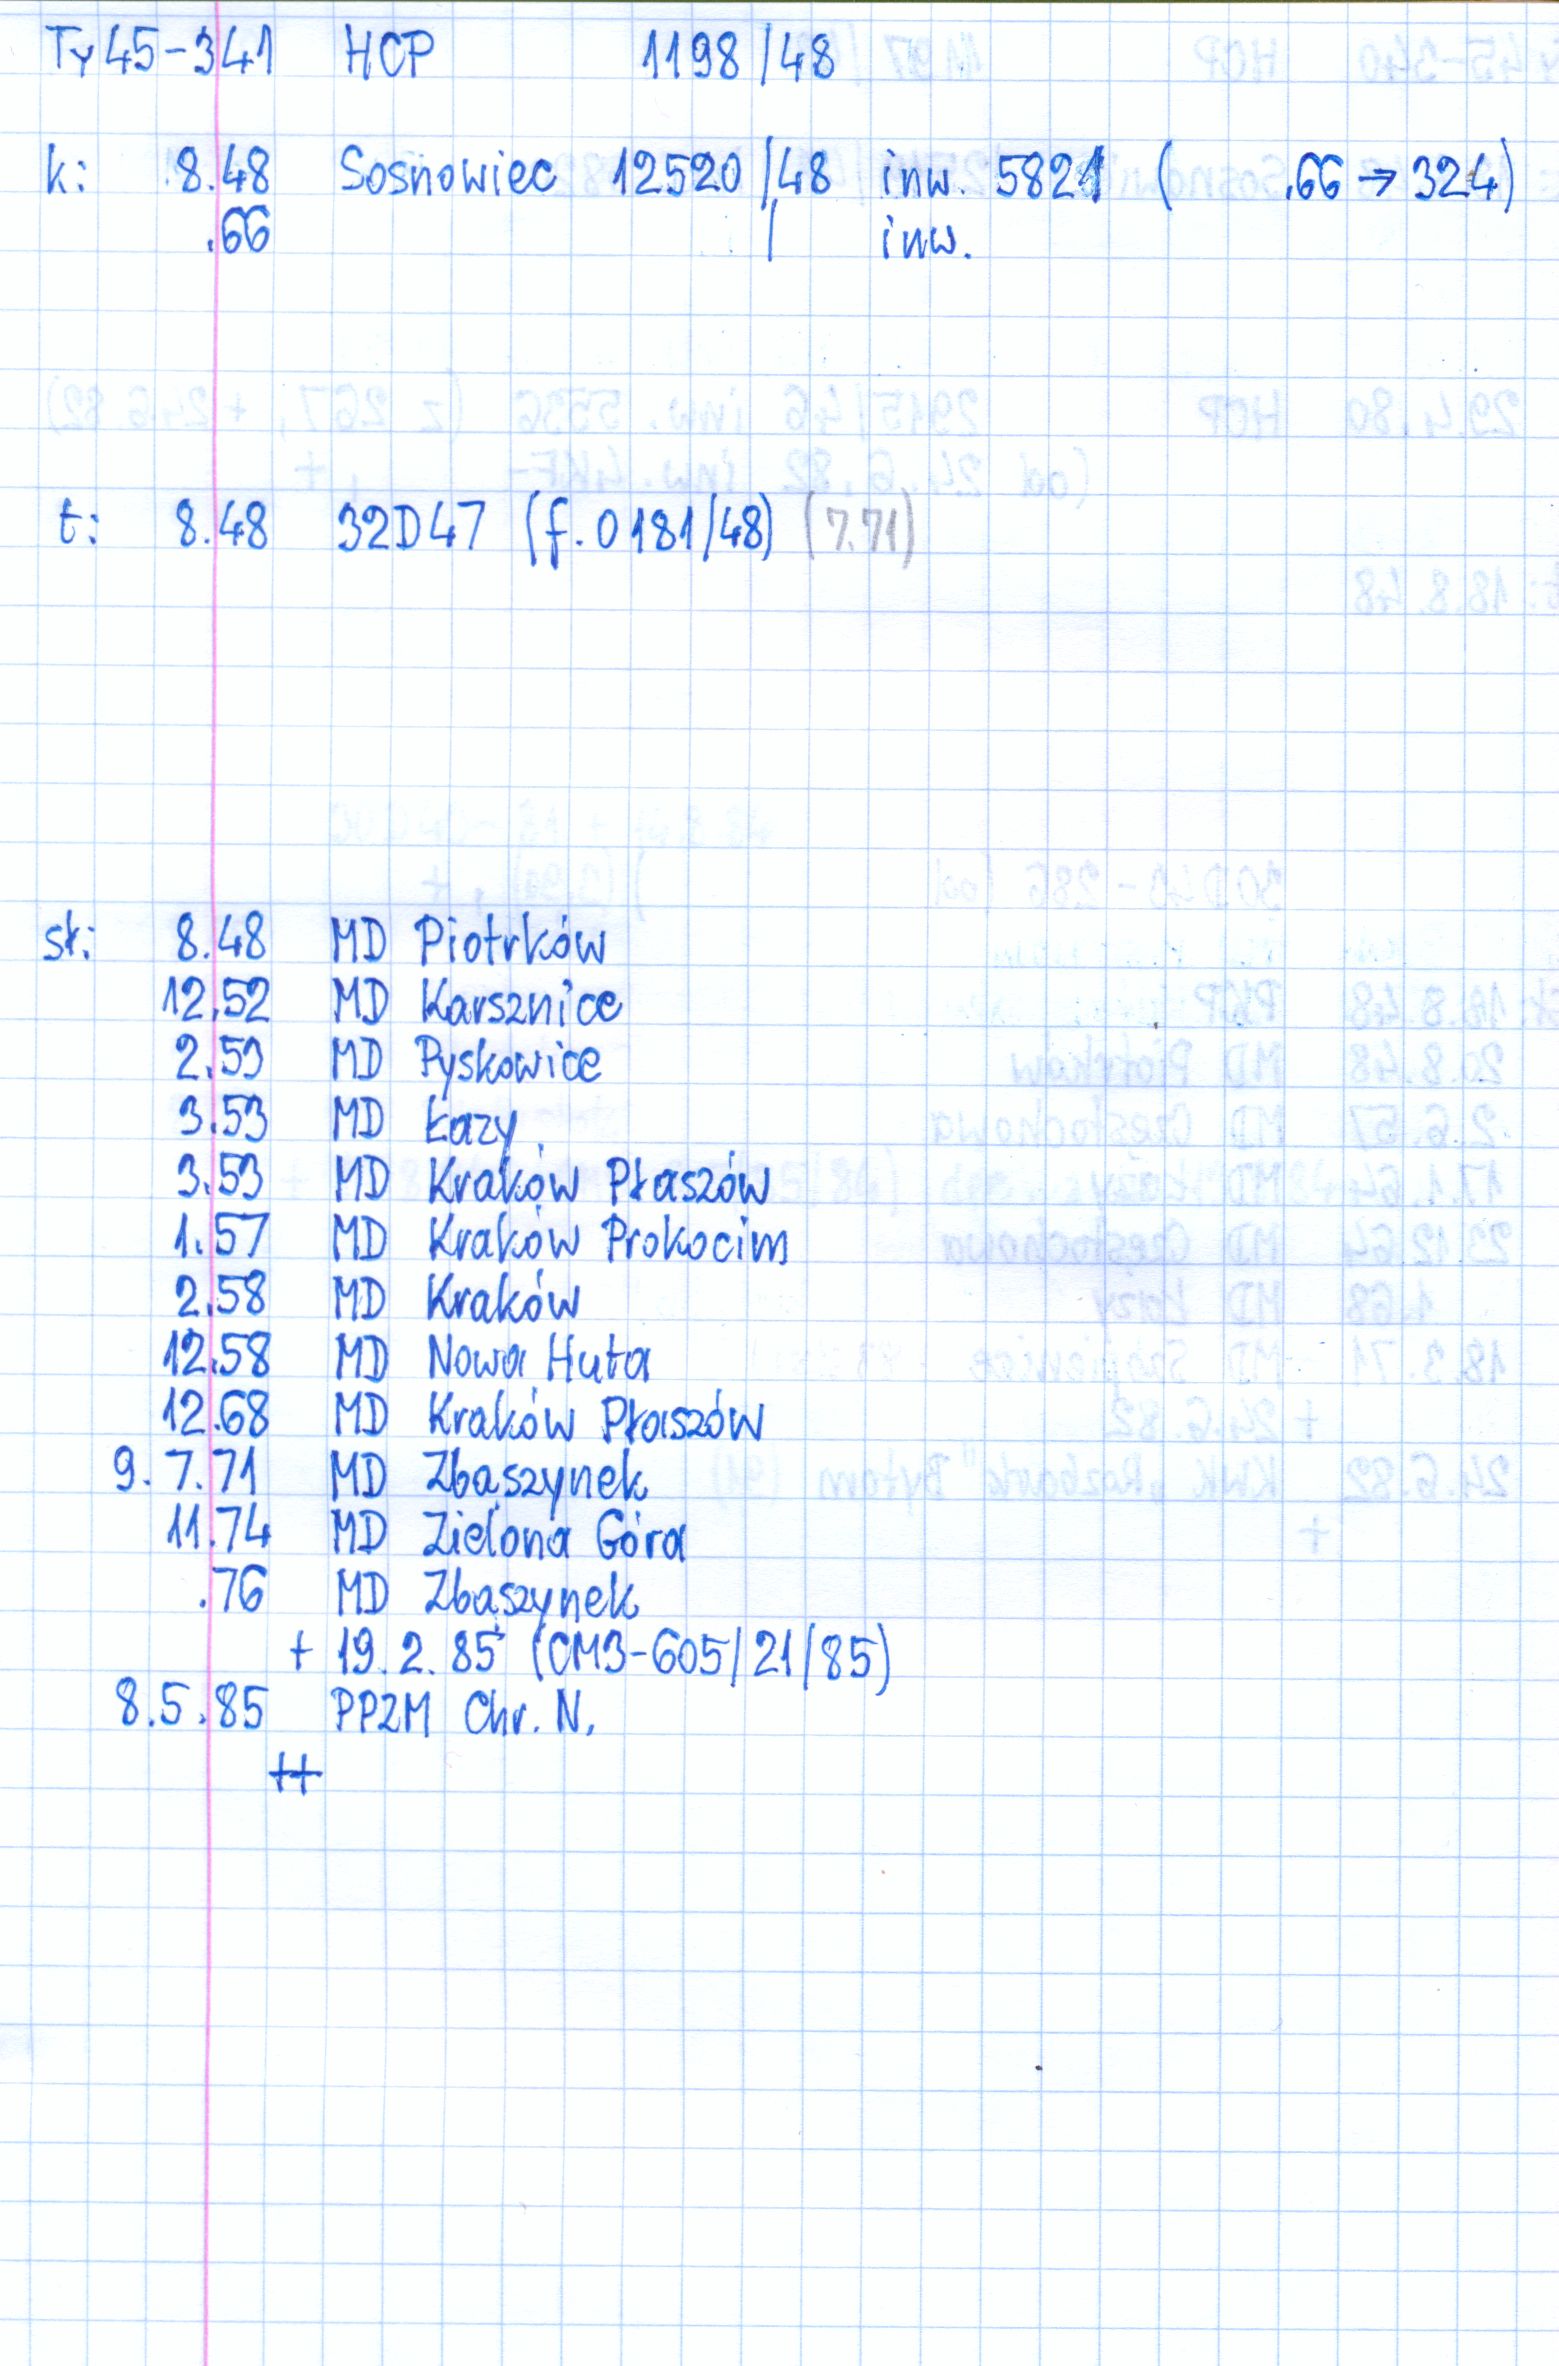 Ty45-341 HCP 1198/48
k: 8.48 Sosnowiec 12520/48 inw. 5821 ( .66 → 324)
.66 / inw.
t: 8.48 32D47 (f. 0181/48) (7.71)
sł: 8.48 MD Piotrków
12.52 MD Karsznice
2.53 MD Pyskowice
3.53 MD Łazy
3.53 MD Kraków Płaszów
1.57 MD Kraków Prokocim
2.58 MD Kraków
12.58 MD Nowa Huta
12.68 MD Kraków Płaszów
9.7.71 MD Zbąszynek
11.74 MD Zielona Góra
.76 MD Zbąszynek
+ 19.2.85 (CM3-605/21/85)
8.5.85 PPZM Chr. N.
++